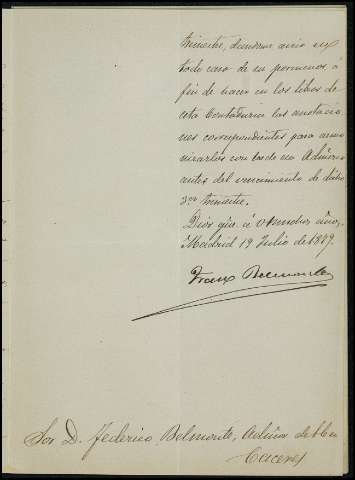 trimestre, dandome aviso en
todo caso de su pormenor, á
fin de hacer en los libros de
esta Contaduria las anotacio
nes correspondientes para armo
nizarlos con los de esa Admon
antes del vencimiento de dicho
3er trimestre.
Dios gue á V muchos años,
Madrid 19 Julio de 1879.
Franco Belmonte
Sor D. Federico Belmonte, Admor de
Caceres